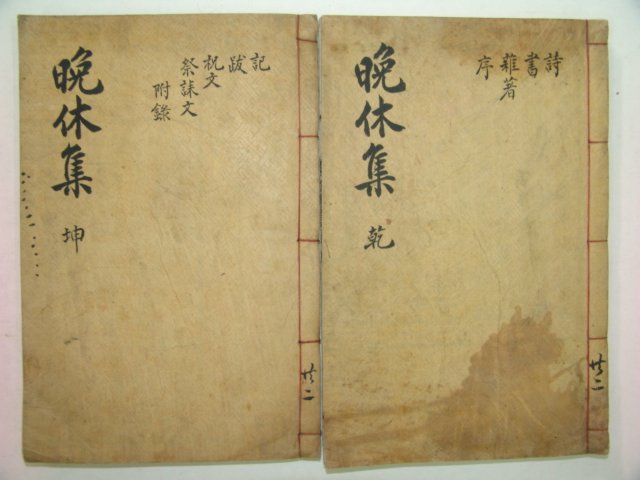 詩
書
雜著
序
晚休集 乾
共二
記
跋
祝文
祭誄文
附錄
晚休集 坤
共二